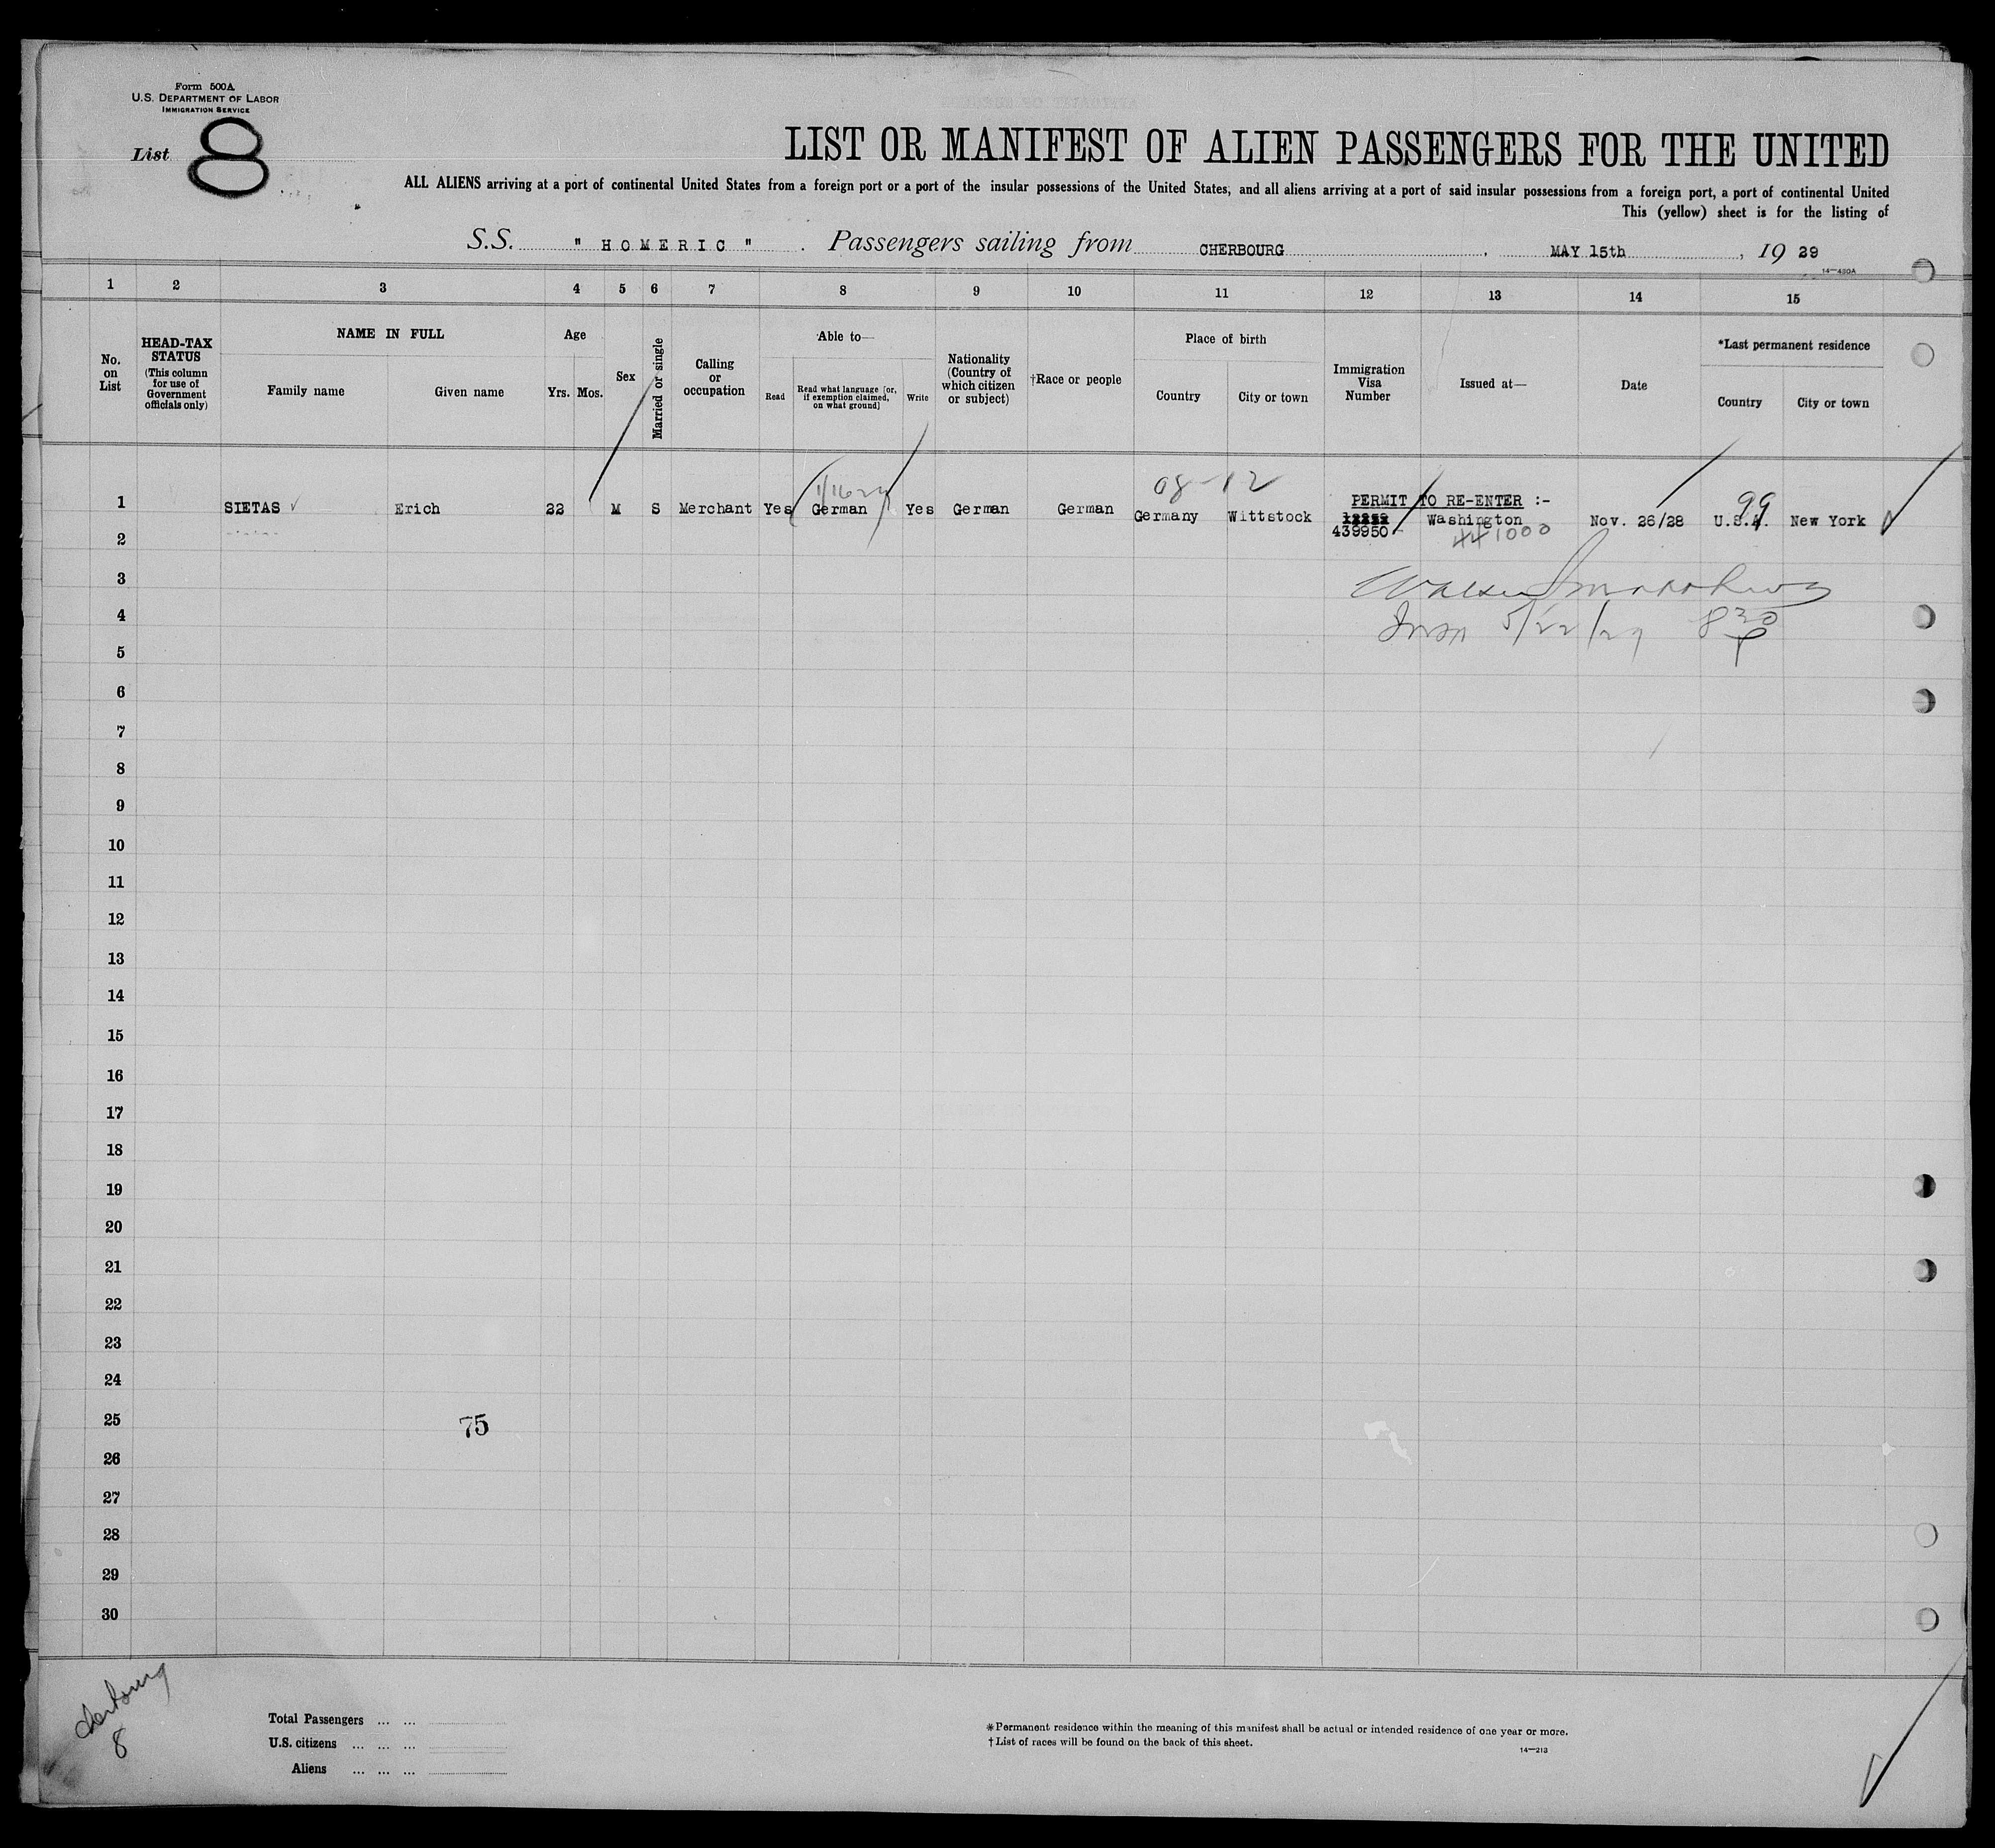 Form 500A
U.S. DEPARTMENT OF LABOR
IMMIGRATION SERVICE
List 8
LIST OR MANIFEST OF ALIEN PASSENGERS FOR THE UNITED
ALL ALIENS arriving at a port of continental United States from a foreign port or a port of the insular possessions of the United States, and all aliens arriving at a port of said insular possessions from a foreign port, a port of continental United
This (yellow) sheet is for the listing of
S.S. " HOMERIC " . Passengers sailing from CHERBOURG , MAY 15th , 19 29
14—430A
1 2 3 4 5 6 7 8 9 10 11 12 13 14 15
No. on List
HEAD-TAX STATUS
(This column for use of Government officials only)
NAME IN FULL
Family name Given name
Age
Yrs. Mos.
Sex
Married or single
Calling or occupation
Able to—
Read
Read what language [or, if exemption claimed, on what ground]
Write
Nationality (Country of which citizen or subject)
†Race or people
Place of birth
Country City or town
Immigration Visa Number
Issued at—
Date
*Last permanent residence
Country City or town
08-12
99
PERMIT TO RE-ENTER :-
1 SIETAS Erich 22 M S Merchant Yes German Yes German German Germany Wittstock Washington Nov. 26/28 U.S.A. New York
439950 441000
2
3
4
5/22/29 8 30
5
6
7
8
9
10
11
12
13
14
15
16
17
18
19
20
21
22
23
24
25
75
26
27
28
29
30
Cherbourg
8
Total Passengers ... ...
U.S. citizens ... ... ...
Aliens ... ... ...
*Permanent residence within the meaning of this manifest shall be actual or intended residence of one year or more.
†List of races will be found on the back of this sheet.
14—213